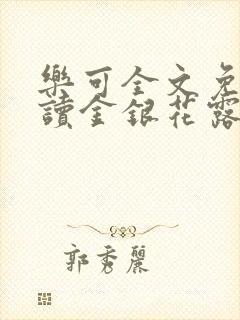 樂可全文免
讀金銀花露
郭秀麗